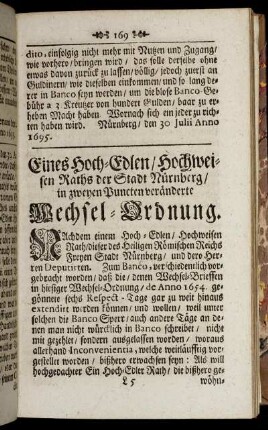 169
dito, einfolgig nicht mehr mit Nutzen und Zugang/
wie vorhero/ bringen wird/ das solle derselbe ohne
etwas davon zuruck zu lassen/ völlig/ jedoch zuerst an
Guldinern/ wie dieselben einkommen/ und so lang de-
rer in Banco seyn werden/ um die blose Banco-Ge-
bühr a 2 Kreutzer von hundert Gulden/ baar zu er-
heben Macht haben. Wornach sich ein jeder zu rich-
ten haben wird. Nürnberg/ den 30 Julii Anno
1695.
Eines Hoch-Edlen/ Hochwei-
sen Raths der Stadt Nürnberg/
in zweyen Puncten veränderte
Wechsel-Ordnung.
NAchdem einem Hoch-Edlen/ Hochweisen
Rath/ dieser des Heiligen Römischen Reichs
Freyen Stadt Nürnberg/ und dero Her-
ren Deputirten. Zum Banco, verschiedentlich vor-
gebracht worden/ daß die/ denen Wechsel-Brieffen
in hiesiger Wechsel-Ordnung/ de Anno 1654. ge-
gönnete sechs Respect-Tage gar zu weit hinaus
extendiret werden können/ und wollen/ weil unter
solchen die Banco Sperr/ auch andere Täge an de-
nen man nicht würcklich in Banco schreibet/ nicht
mit gezehlet/ sondern ausgelassen worden/ woraus
allerhand Inconvenientia, welche weitläufftig vor-
gestellet worden/ bißhero erwachsen seyn: Als will
hochgedachter Ein Hoch-Edler Rath/ die bißhero ge-
L 5 wöhn-